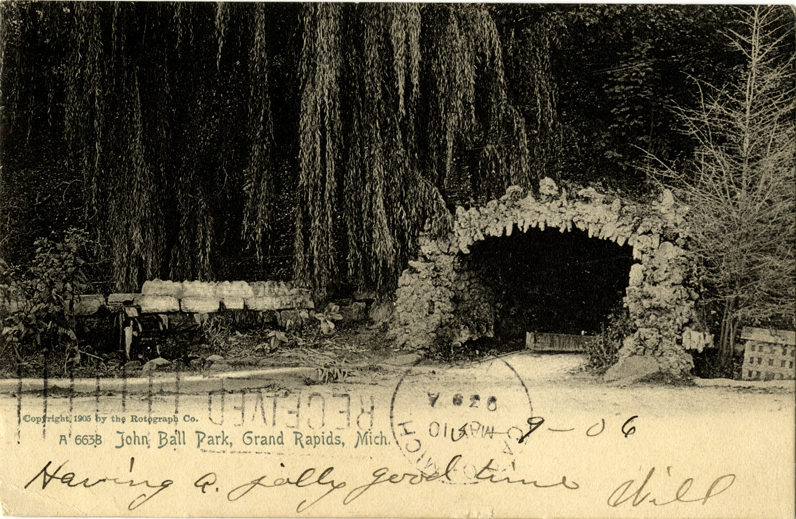 Copyright, 1905 by the Rotograph Co.
A 6638 John Ball Park, Grand Rapids, Mich.
RECEIVED
MICH
MAY 10
9 - 06
Having a jolly good time Will